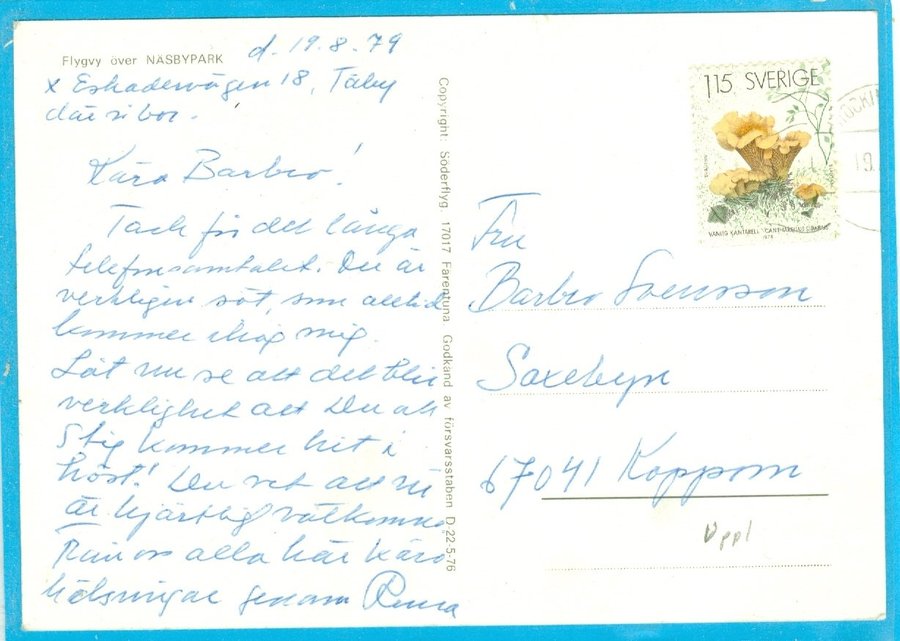 Flygvy över NÄSBYPARK
d. 19.8.79
x Eskadervägen 18, Täby
där vi bor.
Kära Barbro!
Tack för det långa
telefonsamtalet. Du är
verkligen söt, som alltid
kommer ihåg mig.
Låt nu se att det blir
verklighet att Du och
Stig kommer hit i
höst! Du vet att ni
är hjärtligt välkomna
från oss alla här kära
hälsningar genom
Copyright: Söderflyg. 17017 Färentuna Godkänd av försvarsstaben D 22-5-76
115 SVERIGE
VANLIG KANTARELL CANTHARELLUS CIBARIUS
1978
19.
Fru
Barbro Svensson
Saxebyn
67041 Koppom
Uppl